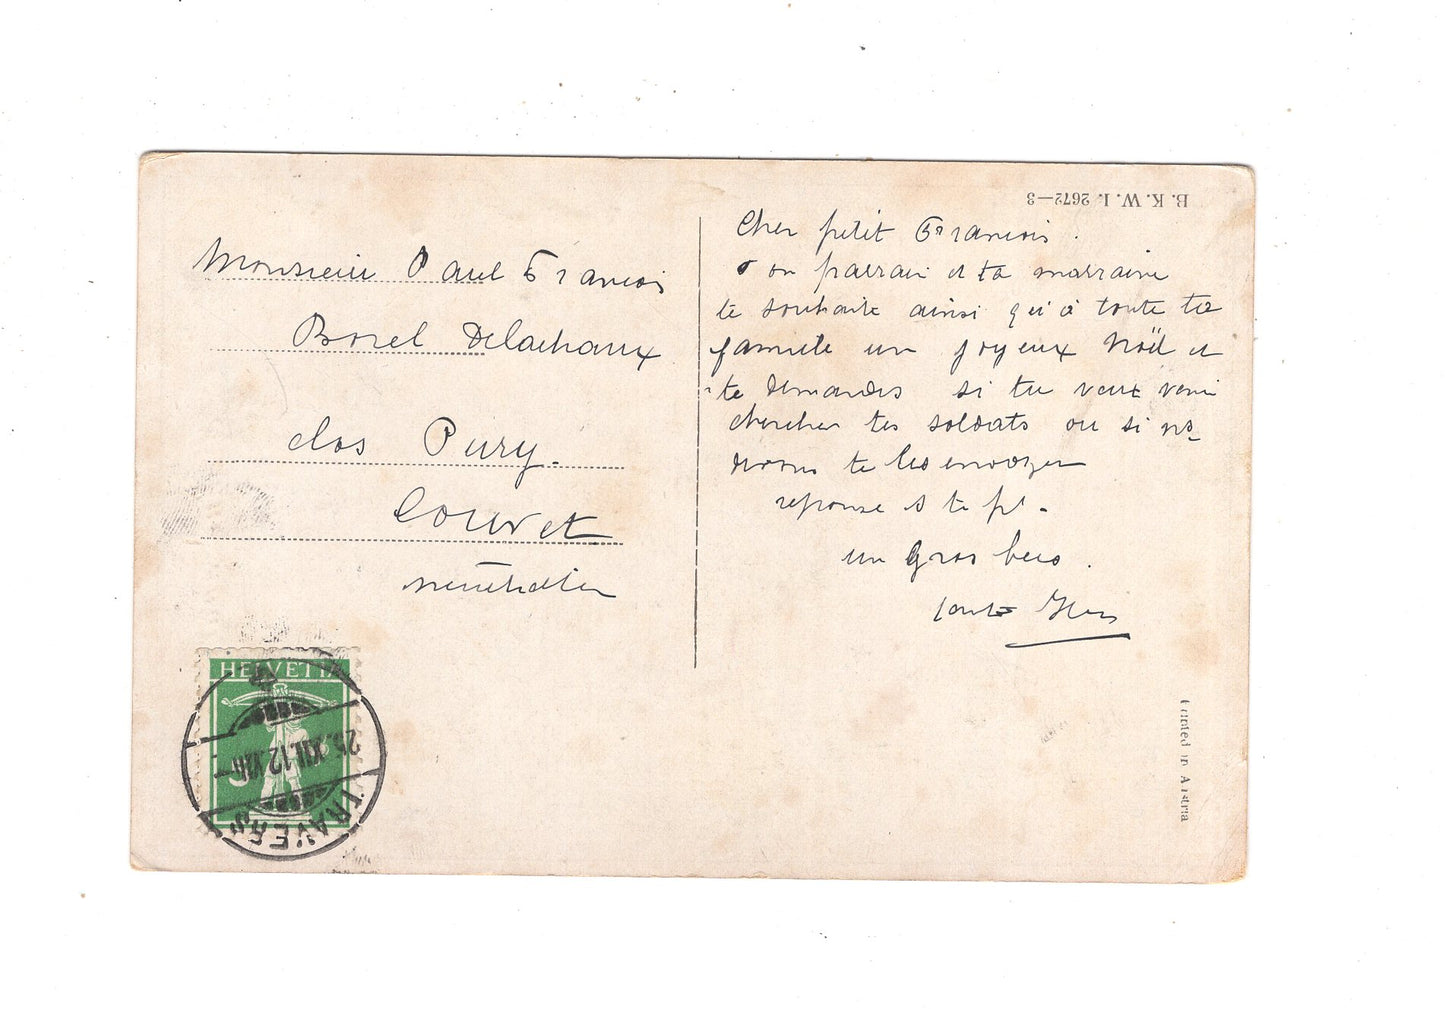 Monsieur Paul François
Borel Delachaux
clos Pury.
Couvet
Neuchatel
B. K. W. I. 2672—3
Cher petit François.
Ton parrain et ta marraine
te souhaite ainsi qu'à toute ta
famille un joyeux Noël et
te demandes si tu veux venir
chercher tes soldats ou si ns
devons te les envoyer
reponse s te pl.
un gros bec.
tante
Printed in Austria
HELVETIA
XII.12
TRAVERS